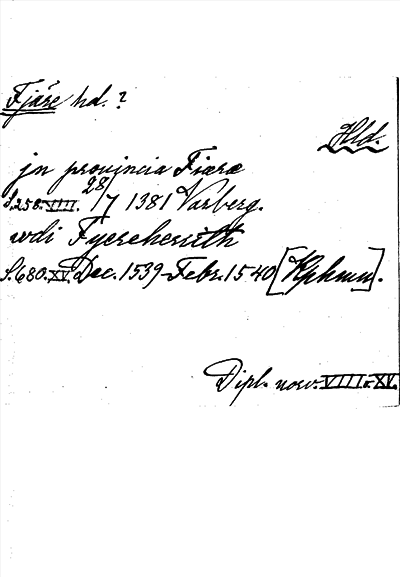 Fjäre hd.?
Hld.
jn provjncia Fiæræ
S. 258. VIII. 28/7 1381 Varberg.
wdi Fyerehersith
S. 680. XV. Dec. 1539-Febr. 1540 [Kphmn].
Dipl. norv. VIII o. XV.